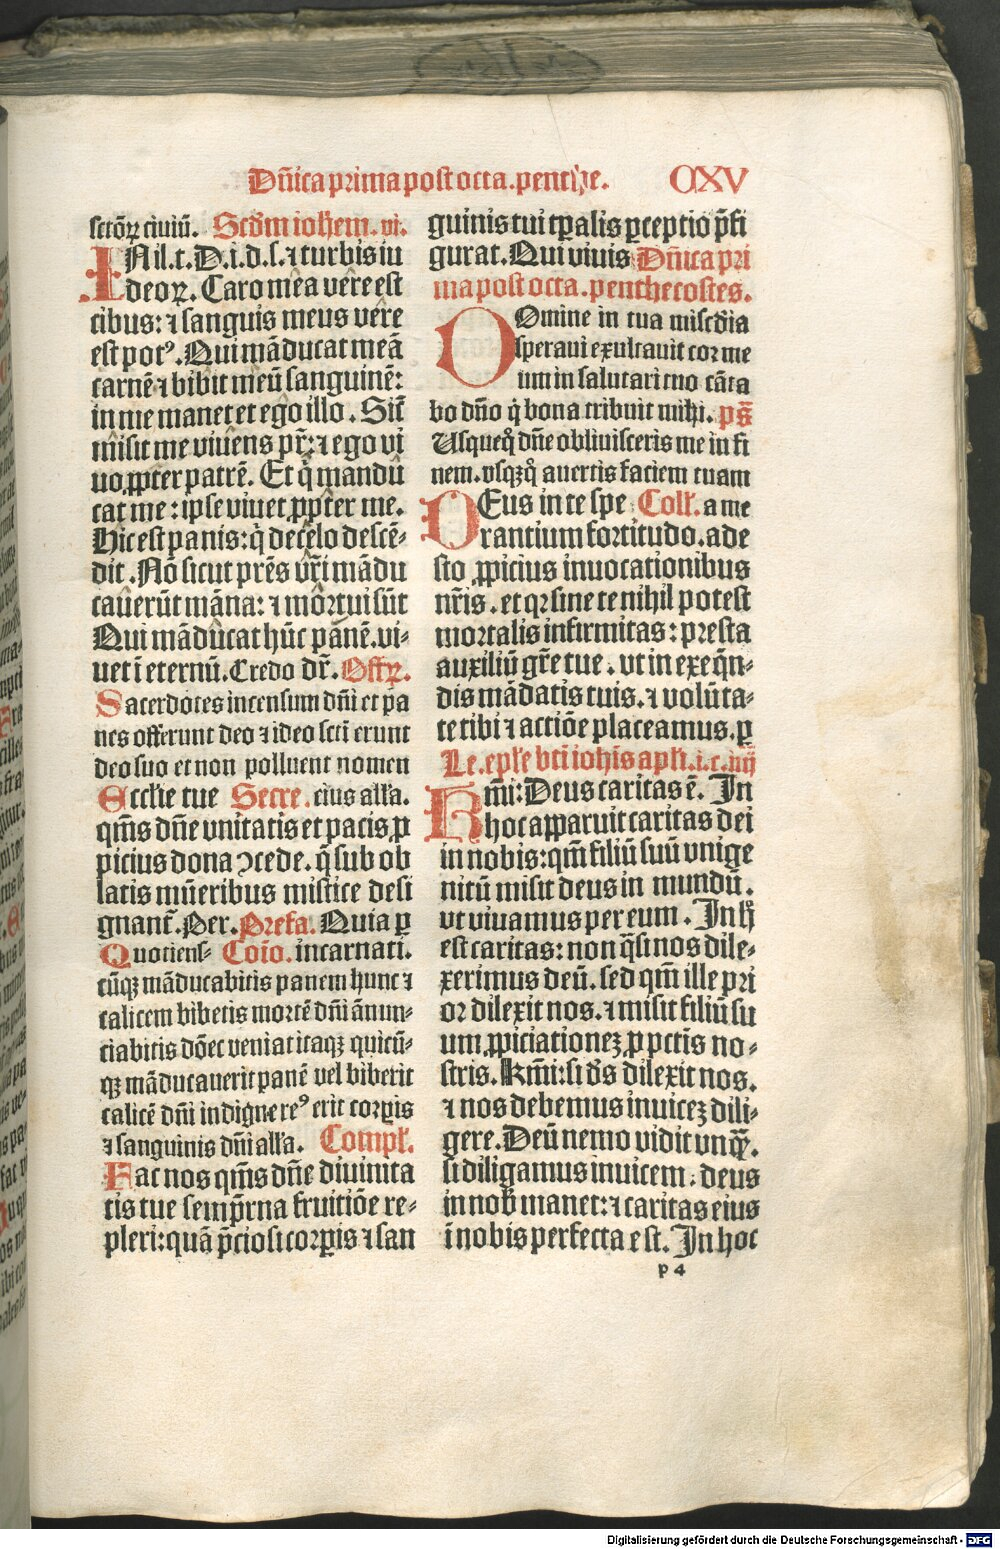 Dñica prima post octa. penthe. CXV
sctōꝝ ciuiū. Scd̄m iohem. vi.
IN il. t. D. i. d. s. ⁊ turbis iu
deoꝝ. Caro mea vere est
cibus: ⁊ sanguis meus vere
est potꝰ. Qui māducat meā
carnē ⁊ bibit meū sanguinē:
in me manet et ego illo. Sic̄
misit me viuens pr̄: ⁊ ego vi
uo ꝓpter patrē. Et q̇ mandu
cat me: ipse viuet ꝓpter me.
Hic est panis: q̇ de celo descē⸗
dit. Nō sicut prēs vr̄i mādu
cauerūt māna: ⁊ mortui sūt
Qui māducat hūc panē. vi⸗
uet ī eternū. Credo dr̄. Offꝝ.
Sacerdotes incensum dn̄i et pa
nes offerunt deo ⁊ ideo scti erunt
deo suo et non polluent nomen
Ecclie tue Secre. eius alla.
qm̄s dn̄e vnitatis et pacis ꝓ
picius dona ↄcede. q̄ sub ob
latis mūeribus mistice desi
gnant̄. Per. Prefa. Quia ꝑ
Quotiens⸗ Coīo. incarnati.
cūqꝫ māducabitis panem hunc ⁊
calicem bibetis mortē dn̄i ānun⸗
ciabitis dōec veniat itaqꝫ quicū⸗
qꝫ māducauerit panē vel biberit
calicē dn̄i indigne reꝰ erit corꝑis
⁊ sanguinis dn̄i alla. Compl̄.
Fac nos qm̄s dn̄e diuinita
tis tue semp̄rna fruitiōe re⸗
pleri: quā p̄ciosi corꝑis ⁊ san
guinis tui tꝑalis ꝑceptio p̄fi
gurat. Qui viuis Dñica pri
ma post octa. penthecostes.
DOmine in tua miscd̄ia
speraui exultauit cor me
um in salutari tuo cāta
bo dn̄o q̇ bona tribuit mihi. ps̄
Usqueq̊ dn̄e obliuisceris me in fi
nem. vsqꝫq̊ auertis faciem tuam
DEus in te spe Coll̄. a me
rantium fortitudo. ade
sto ꝓpicius inuocationibus
nr̄is. et qꝛ sine te nihil potest
mortalis infirmitas: presta
auxiliū gr̄e tue. vt in exeq̄n⸗
dis mādatis tuis. ⁊ volūta⸗
te tibi ⁊ actiōe placeamus. ꝑ
Le. epl̄e bt̄i ioh̄is apl̄i. i. c. iiij
Km̄i: Deus caritas ē. In
hoc apparuit caritas dei
in nobis: qm̄ filiū suū vnige
nitū misit deus in mundū.
vt viuamus per eum. In h̊
est caritas: non q̄si nos dile⸗
xerimus deū. sed qm̄ ille pri
or dilexit nos. ⁊ misit filiū su
um ꝓpiciationeꝫ ꝓ pctīs no⸗
stris. Km̄i: si d̄s dilexit nos.
⁊ nos debemus inuiceꝫ dili⸗
gere. Deū nemo vidit vnqꝫ̄.
si diligamus inuicem: deus
in nob̄ manet: ⁊ caritas eius
ī nobis perfecta est. In hoc
p 4
Digitalisierung gefördert durch die Deutsche Forschungsgemeinschaft - DFG